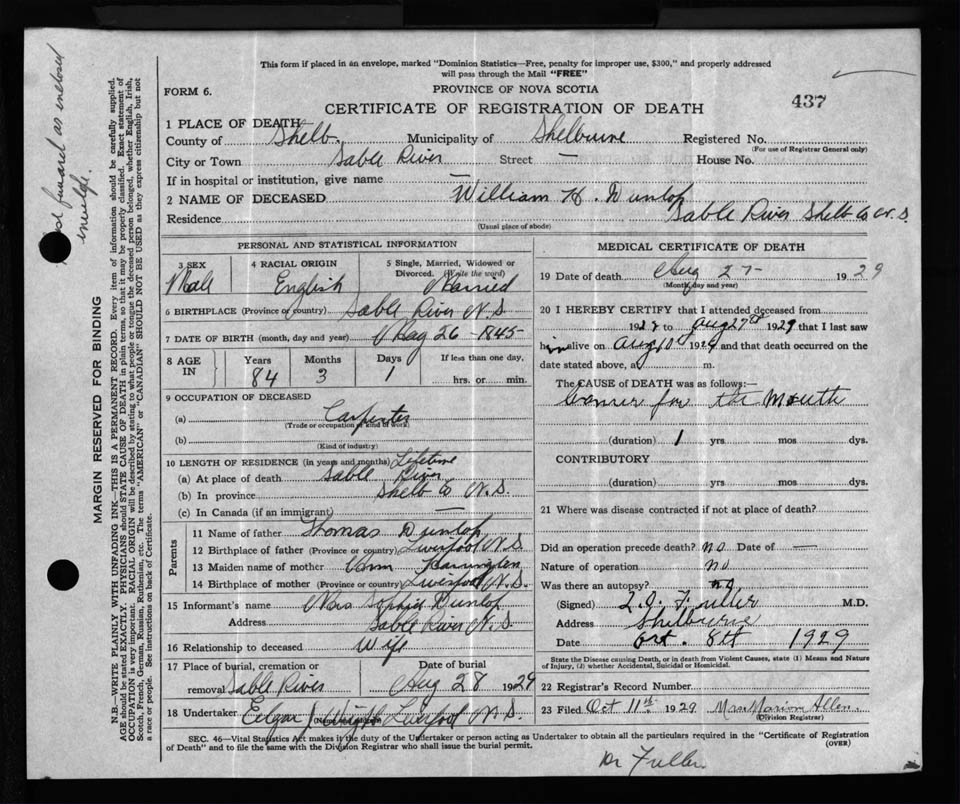 This form if placed in an envelope, marked "Dominion Statistics—Free, penalty for improper use, $300," and properly addressed
will pass through the Mail "FREE"
FORM 6.
PROVINCE OF NOVA SCOTIA
437
CERTIFICATE OF REGISTRATION OF DEATH
1 PLACE OF DEATH
County of Shelb. Municipality of Shelburne Registered No.
(For use of Registrar General only)
City or Town Sable River Street — House No.
If in hospital or institution, give name —
2 NAME OF DECEASED William H. Dunlop
Residence Sable River Shelb Co N.S.
(Usual place of abode)
PERSONAL AND STATISTICAL INFORMATION
3 SEX 4 RACIAL ORIGIN 5 Single, Married, Widowed or
Divorced. (Write the word)
Male English Married
6 BIRTHPLACE (Province or country) Sable River N.S.
7 DATE OF BIRTH (month, day and year) May 26 - 1845
8 AGE IN Years Months Days If less than one day,
84 3 1 hrs. or min.
9 OCCUPATION OF DECEASED
(a) Carpenter
(Trade or occupation or kind of work)
(b)
(Kind of industry)
10 LENGTH OF RESIDENCE (in years and months) Lifetime
(a) At place of death Sable River
(b) In province Shelb Co N.S.
(c) In Canada (if an immigrant) —
Parents
11 Name of father Thomas Dunlop
12 Birthplace of father (Province or country) Liverpool N.S.
13 Maiden name of mother Ann Harrington
14 Birthplace of mother (Province or country) Liverpool N.S.
15 Informant's name Mrs Sophia Dunlop
Address Sable River N.S.
16 Relationship to deceased Wife
17 Place of burial, cremation or Date of burial
removal Sable River Aug 28 1929
18 Undertaker Edgar J Wright Liverpool N.S.
MEDICAL CERTIFICATE OF DEATH
19 Date of death Aug 27 - 1929
(Month, day and year)
20 I HEREBY CERTIFY that I attended deceased from
1928 to Aug 27th 1929 that I last saw
him alive on Aug 10th 1929 and that death occurred on the
date stated above, at m.
The CAUSE of DEATH was as follows:—
Cancer for the Mouth
(duration) 1 yrs mos dys.
CONTRIBUTORY
(duration) yrs. mos. dys.
21 Where was disease contracted if not at place of death?
Did an operation precede death? no Date of —
Nature of operation no
Was there an autopsy? no
(Signed) Fuller M.D.
Address Shelburne
Date Oct. 8th 1929
State the Disease causing Death, or in death from Violent Causes, state (1) Means and Nature
of Injury, (2) whether Accidental, Suicidal or Homicidal.
22 Registrar's Record Number
23 Filed Oct 11th 1929 Mrs Marion Allen
(Division Registrar)
SEC. 46—Vital Statistics Act makes it the duty of the Undertaker or person acting as Undertaker to obtain all the particulars required in the "Certificate of Registration
of Death" and to file the same with the Division Registrar who shall issue the burial permit.
(OVER)
Dr Fuller
funeral as enclosed
MARGIN RESERVED FOR BINDING
N.B.—WRITE PLAINLY WITH UNFADING INK—THIS IS A PERMANENT RECORD. Every item of information should be carefully supplied.
AGE should be stated EXACTLY. PHYSICIANS should STATE CAUSE OF DEATH in plain terms, so that it may be properly classified. Exact statement of
OCCUPATION is very important. RACIAL ORIGIN will be described by stating to what people or tongue the deceased person belonged, whether English, Irish,
Scotch, French, German, Russian, Ruthenian, etc. The terms "AMERICAN" or "CANADIAN" SHOULD NOT BE USED as they express citizenship but not
a race or people. See instructions on back of Certificate.